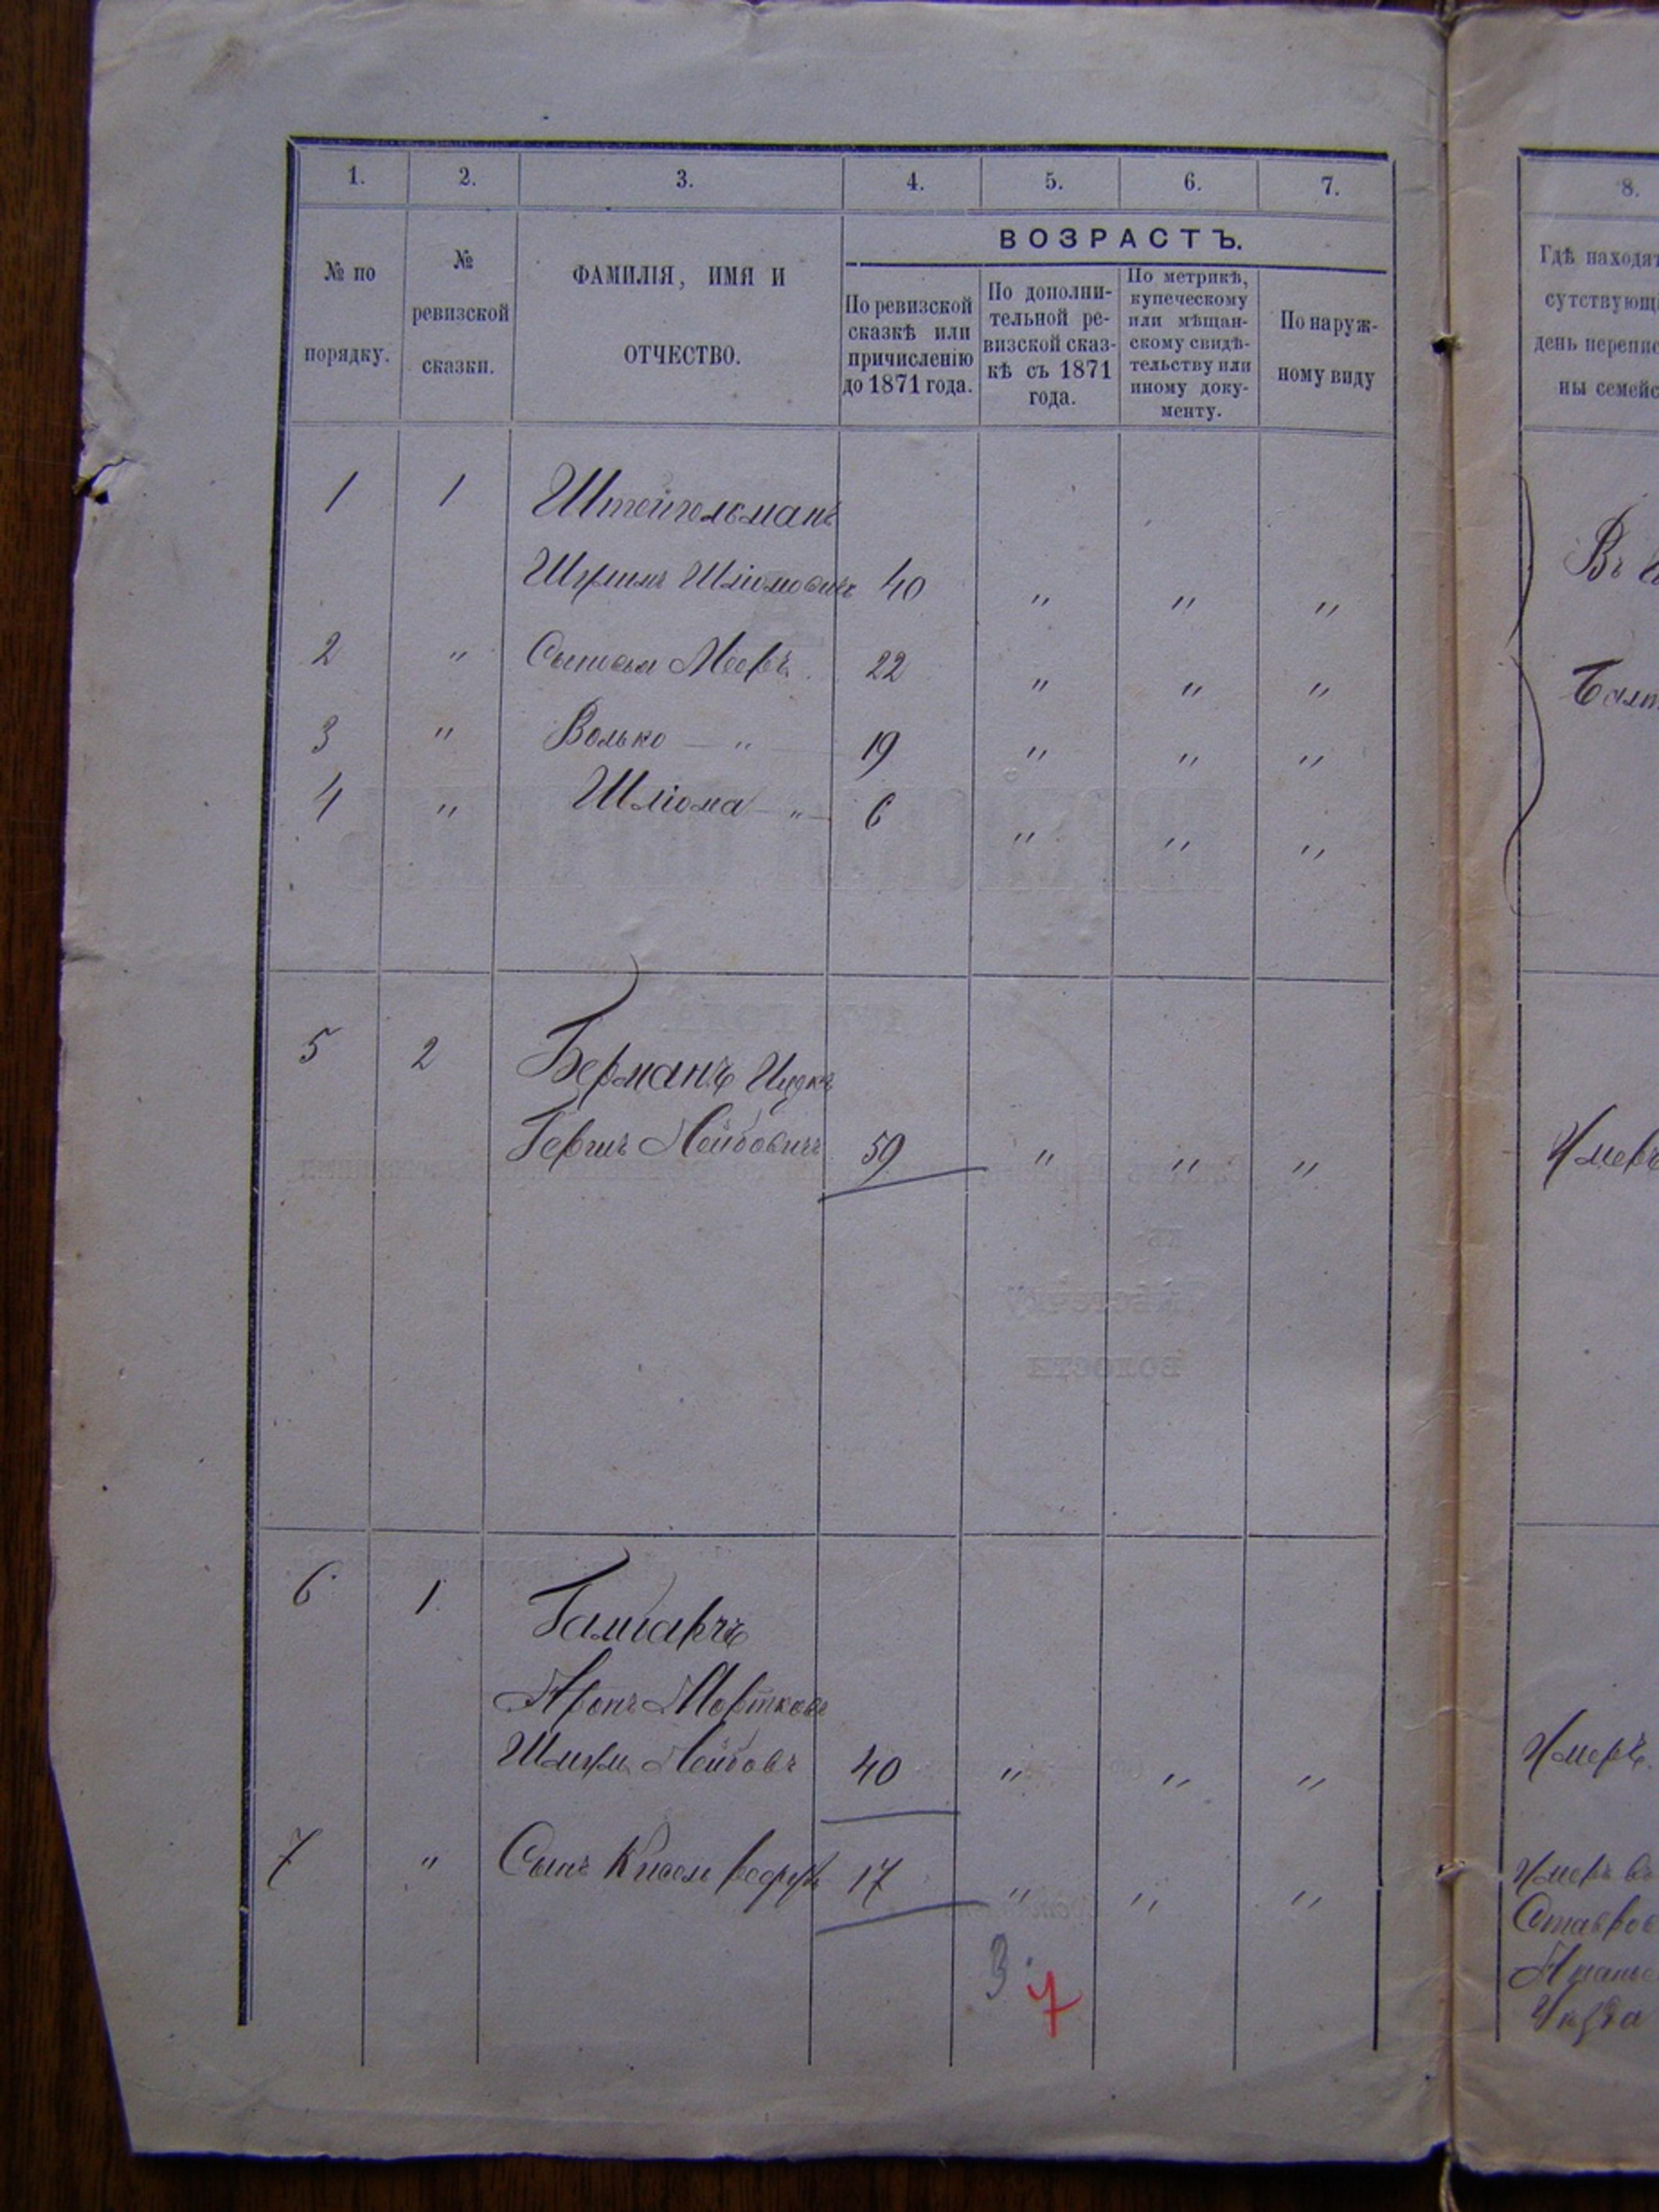 1. 2. 3. 4. 5. 6. 7.
№ по порядку.
№ ревизской сказки.
ФАМИЛІЯ, ИМЯ И
ОТЧЕСТВО.
ВОЗРАСТЪ.
По ревизской
сказкѣ или
причисленію
до 1871 года.
По дополни-
тельной ре-
визской сказ-
кѣ съ 1871
года.
По метрикѣ,
купеческому
или мѣщан-
скому свидѣ-
тельству или
иному доку-
менту.
По наруж-
ному виду
1 1 Штейгольманъ
Шліомовичъ 40 " " "
2 " Сыновья Мееръ 22 " " "
3 " Волько — " — 19 " " "
4 " Шліома — " — 6 " " "
5 2 Берманъ Ицко
Гершъ Лейбовичъ 59 " " "
6 1
Аронъ Мортков
Лейбовъ 40 " " "
7 " Сынъ Кисель 17 " " "
3. 7
8.
Гдѣ находят
сутствующ
день перепис
ны семейс
Въ
Умеръ
Умеръ.
Умеръ въ
Ставров